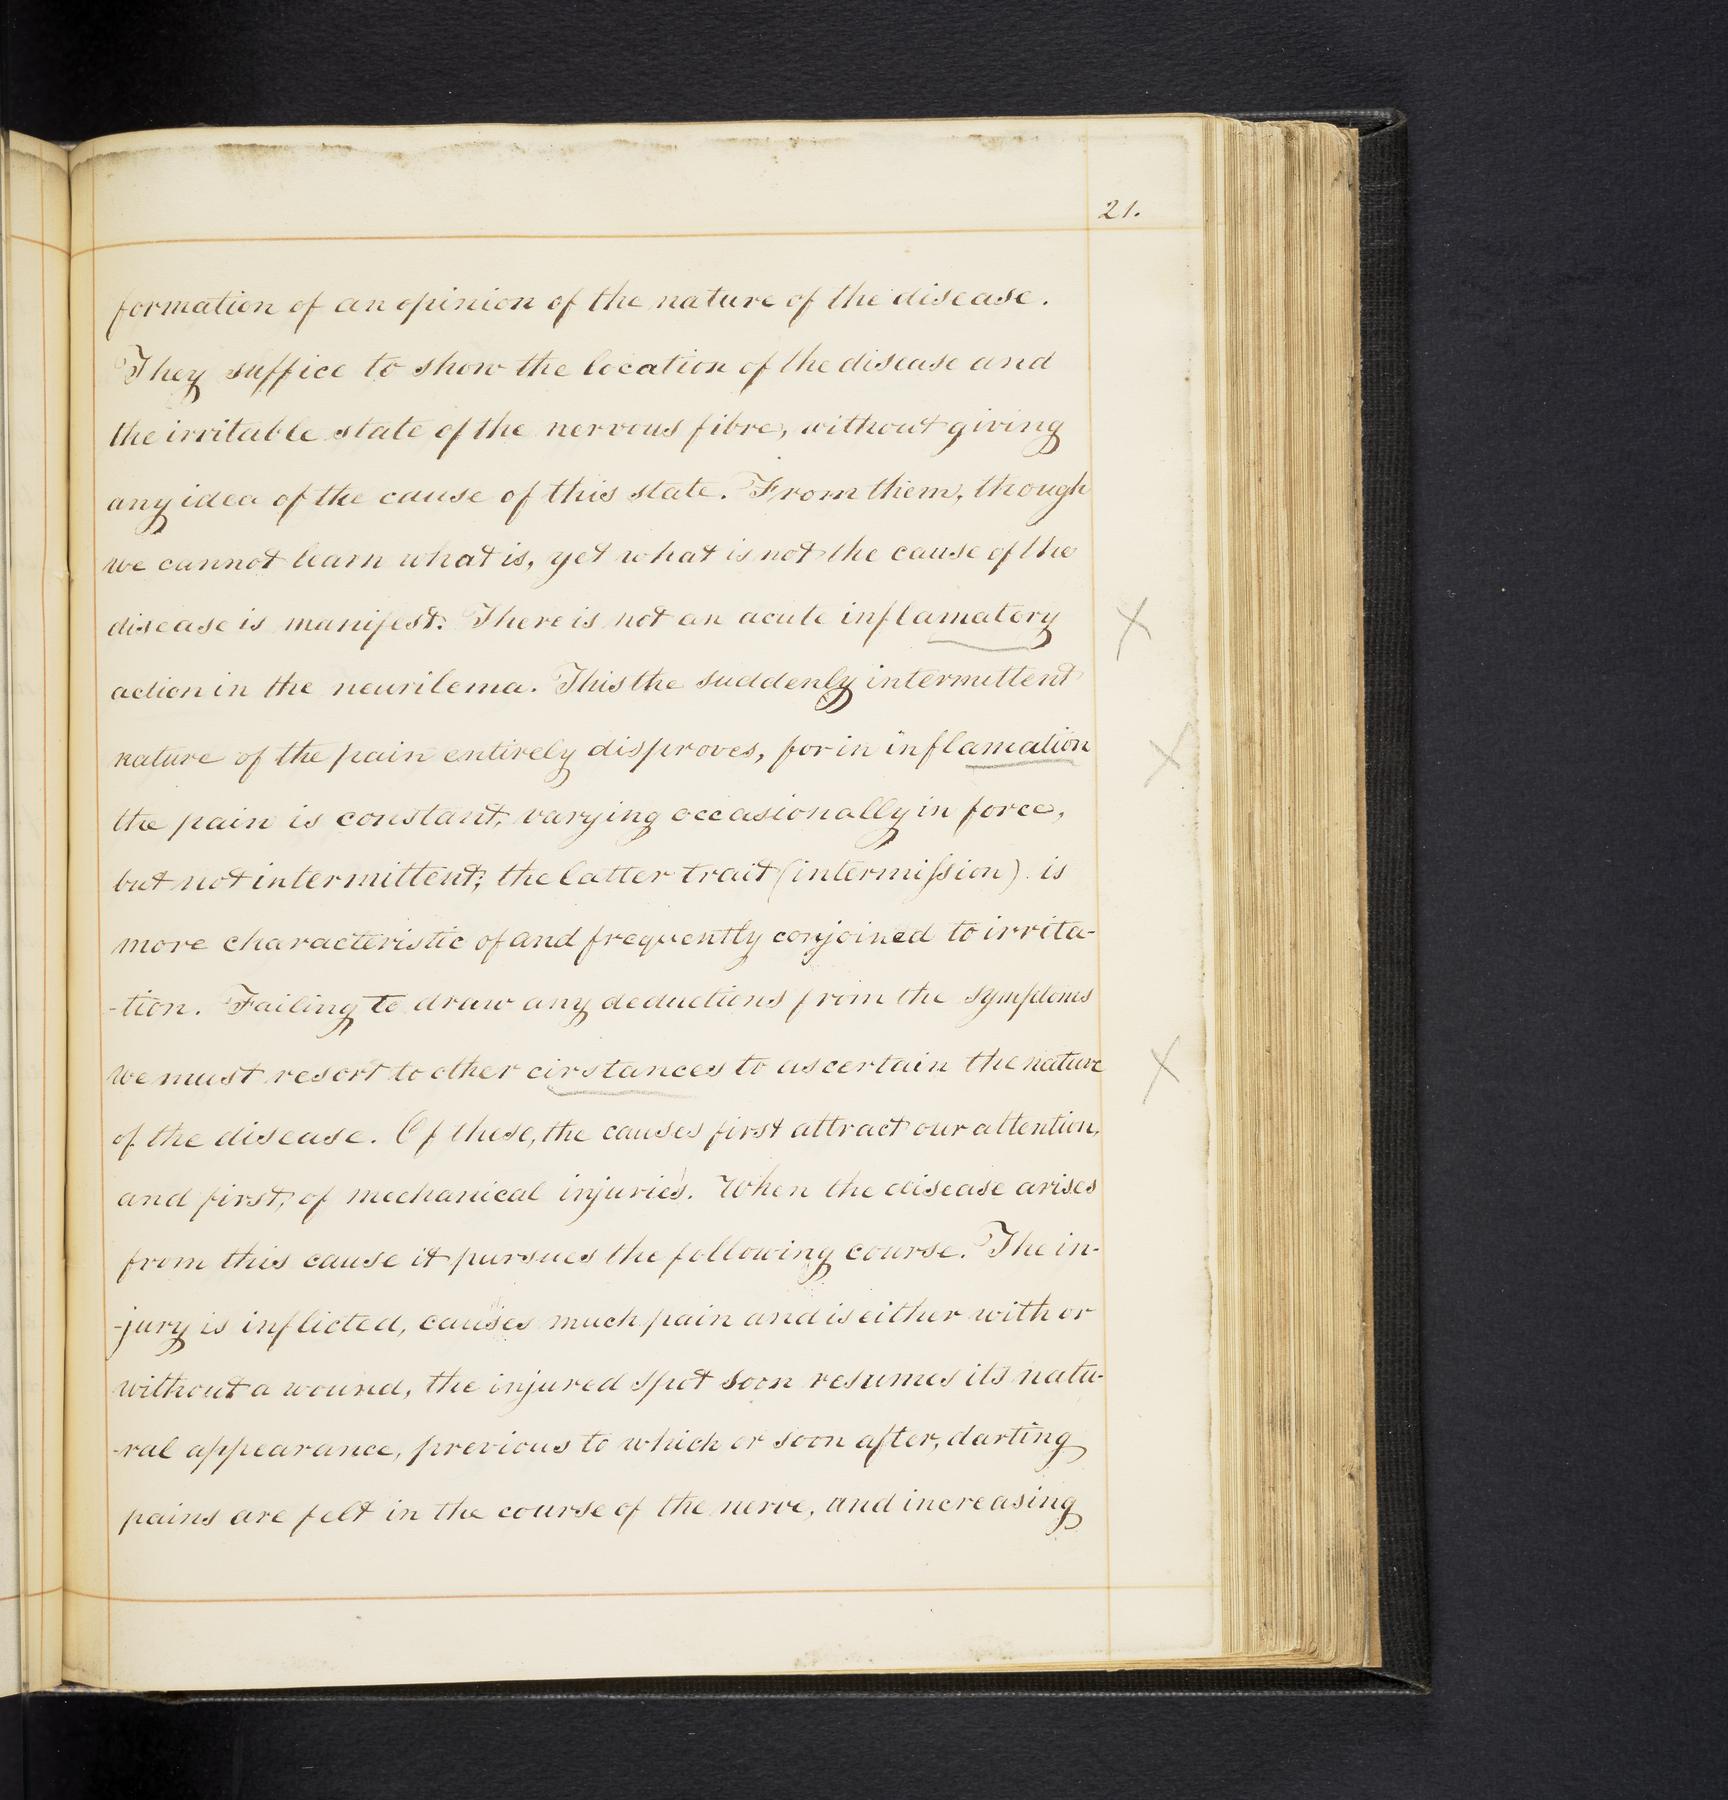 21.
formation of an opinion of the nature of the disease.
They suffice to show the location of the disease and
the irritable state of the nervous fibre, without giving
any idea of the cause of this state. From them, though
we cannot learn what is, yet what is not the cause of the
disease is manifest. There is not an acute inflamatory
action in the neurilema. This the suddenly intermittent
nature of the pain entirely disproves, for in inflamation
the pain is constant, varying occasionally in force,
but not intermittent; the latter trait (intermiſsion) is
more characteristic of and frequently conjoined to irrita-
-tion. Failing to draw any deductions from the symptoms
we must resort to other cirstances to ascertain the nature
of the disease. Of these, the causes first attract our attention,
and first, of mechanical injuries. When the disease arises
from this cause it pursues the following course. The in-
-jury is inflicted, causes much pain and is either with or
without a wound, the injured spot soon resumes its natu-
-ral appearance, previous to which or soon after, darting
pains are felt in the course of the nerve, and increasing